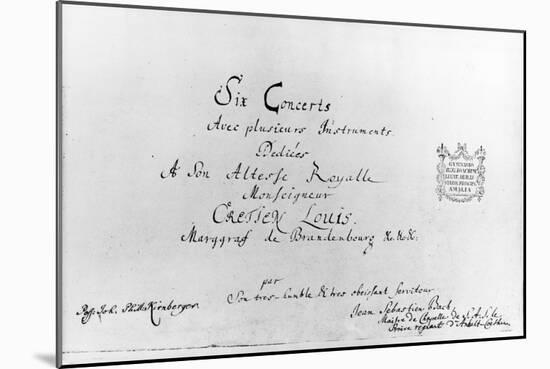 Six Concerts
Avec plusieurs Instruments.
Dediées
A Son Altesse Royalle
Monseigneur
CRETIEN LOUIS.
Marggraf de Brandenbourg &c. &c. &c:
par
Son tres-humble & tres obeissant Serviteur
Jean Sebastien Bach,
Maitre de Chapelle de S. A. S. le
Prince regnant d'Anhalt-Coethen.
Poss: Joh. Phill. Kirnberger.
AMALIA